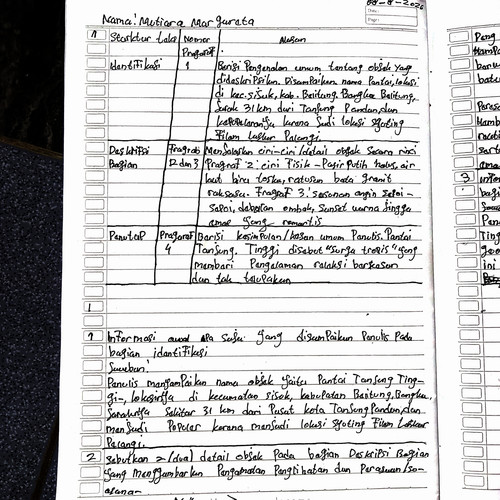 08-8-2026
Nama: Mutiara Margareta
1 Struktur Laks Nomor Alasan
Pragraf
Identifikasi 1 Berisi Pengenalan umum tentang objek yang
dideskripsikan. Disampaikan nama Pantai, lokasi
di kec. sisuk, kab. Belitung, Bangka Belitung,
Jarak 31 km dari Tanjung Pandan, dan
karena Judi lokasi syoting
Film Laskar Pelangi.
Deskripsi Pragraf Menjelaskan ciri-ciri/detail objek secara rinci
Bagian 2 dan 3 Pragraf 2: ciri Fisik - Pasir Putih halus, air
laut biru toska, ratusan batu granit
raksasa. Fragraf 3: suasanan angin sepoi-
sepoi, deburan ombak, sunset warna Jingga
yang romantis
Penutup Pragraf Berisi kesimpulan/kesan umum Penulis. Pantai
4 Tanjung Tinggi disebut "Surga tropis" yang
membari Pengalaman relaksi berkesan
dan tak telupakan
1
1 Informasi awal apa saja yang disampaikan Penulis Pada
bagian identifikasi
Jawaban:
Panulis menyampaikan nama objek yaitu Pantai Tanjung Ting-
gi-, lokasinya di kecamatan sisok, kabupatan Belitung, Bangka,
Jaraknya sekitar 31 km dari Pusat kota Tanjung Pandan, dan
menjudi Populer karena menjudi lokasi syoting Film Laskar
Pelangi.
2 sebutkan 2 (dua) detail objek Pada bagian Deskripsi Bagian
yang menggambarkan Pengamatan Penglihatan dan Perasaan/su-
asana-
Peng
Hampa
baru
batu
Peras
Hamb
roman
sert
amat
3 infor
bagi
Pen
Ting
geo
ini